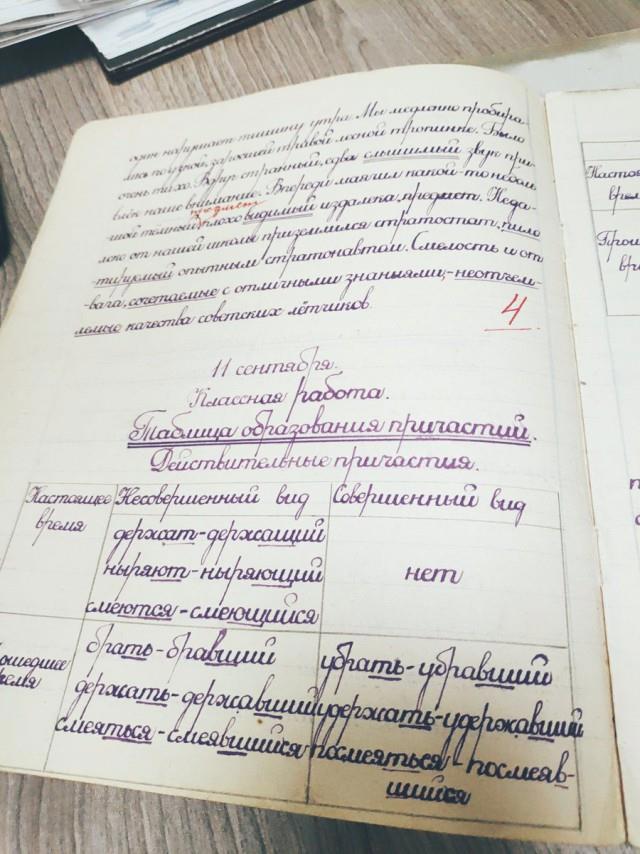 один нарушает тишину утра. Мы медленно пробира-
лись по узкой, заросшей травой лесной тропинке. Было
очень тихо. Вдруг странный, едва слышимый звук при-
влёк наше внимание. Впереди маячил какой-то небол-
предмет
шой тёмный плохо видимый издалека, предмет. Неда-
леко от нашей школы приземлился стратостат, пило
тируемый опытным стратонавтом. Смелость и от
вага, сочетаемые с отличными знаниями,-неотъем-
лемые качества советских лётчиков.
4
11 сентября.
Классная работа.
Таблица образования причастий.
Действительные причастия.
Настоящее Несовершенный вид Совершенный вид
время
держат-держащий
ныряют-ныряющий нет
смеются-смеющийся
брать-бравший убрать-убравший
ошедшее
ремя
держать-державший удержать-удержавший
смеяться-смеявшийся посмеяться-посмеяв-
шийся
Настоя
врем
Прош
вр